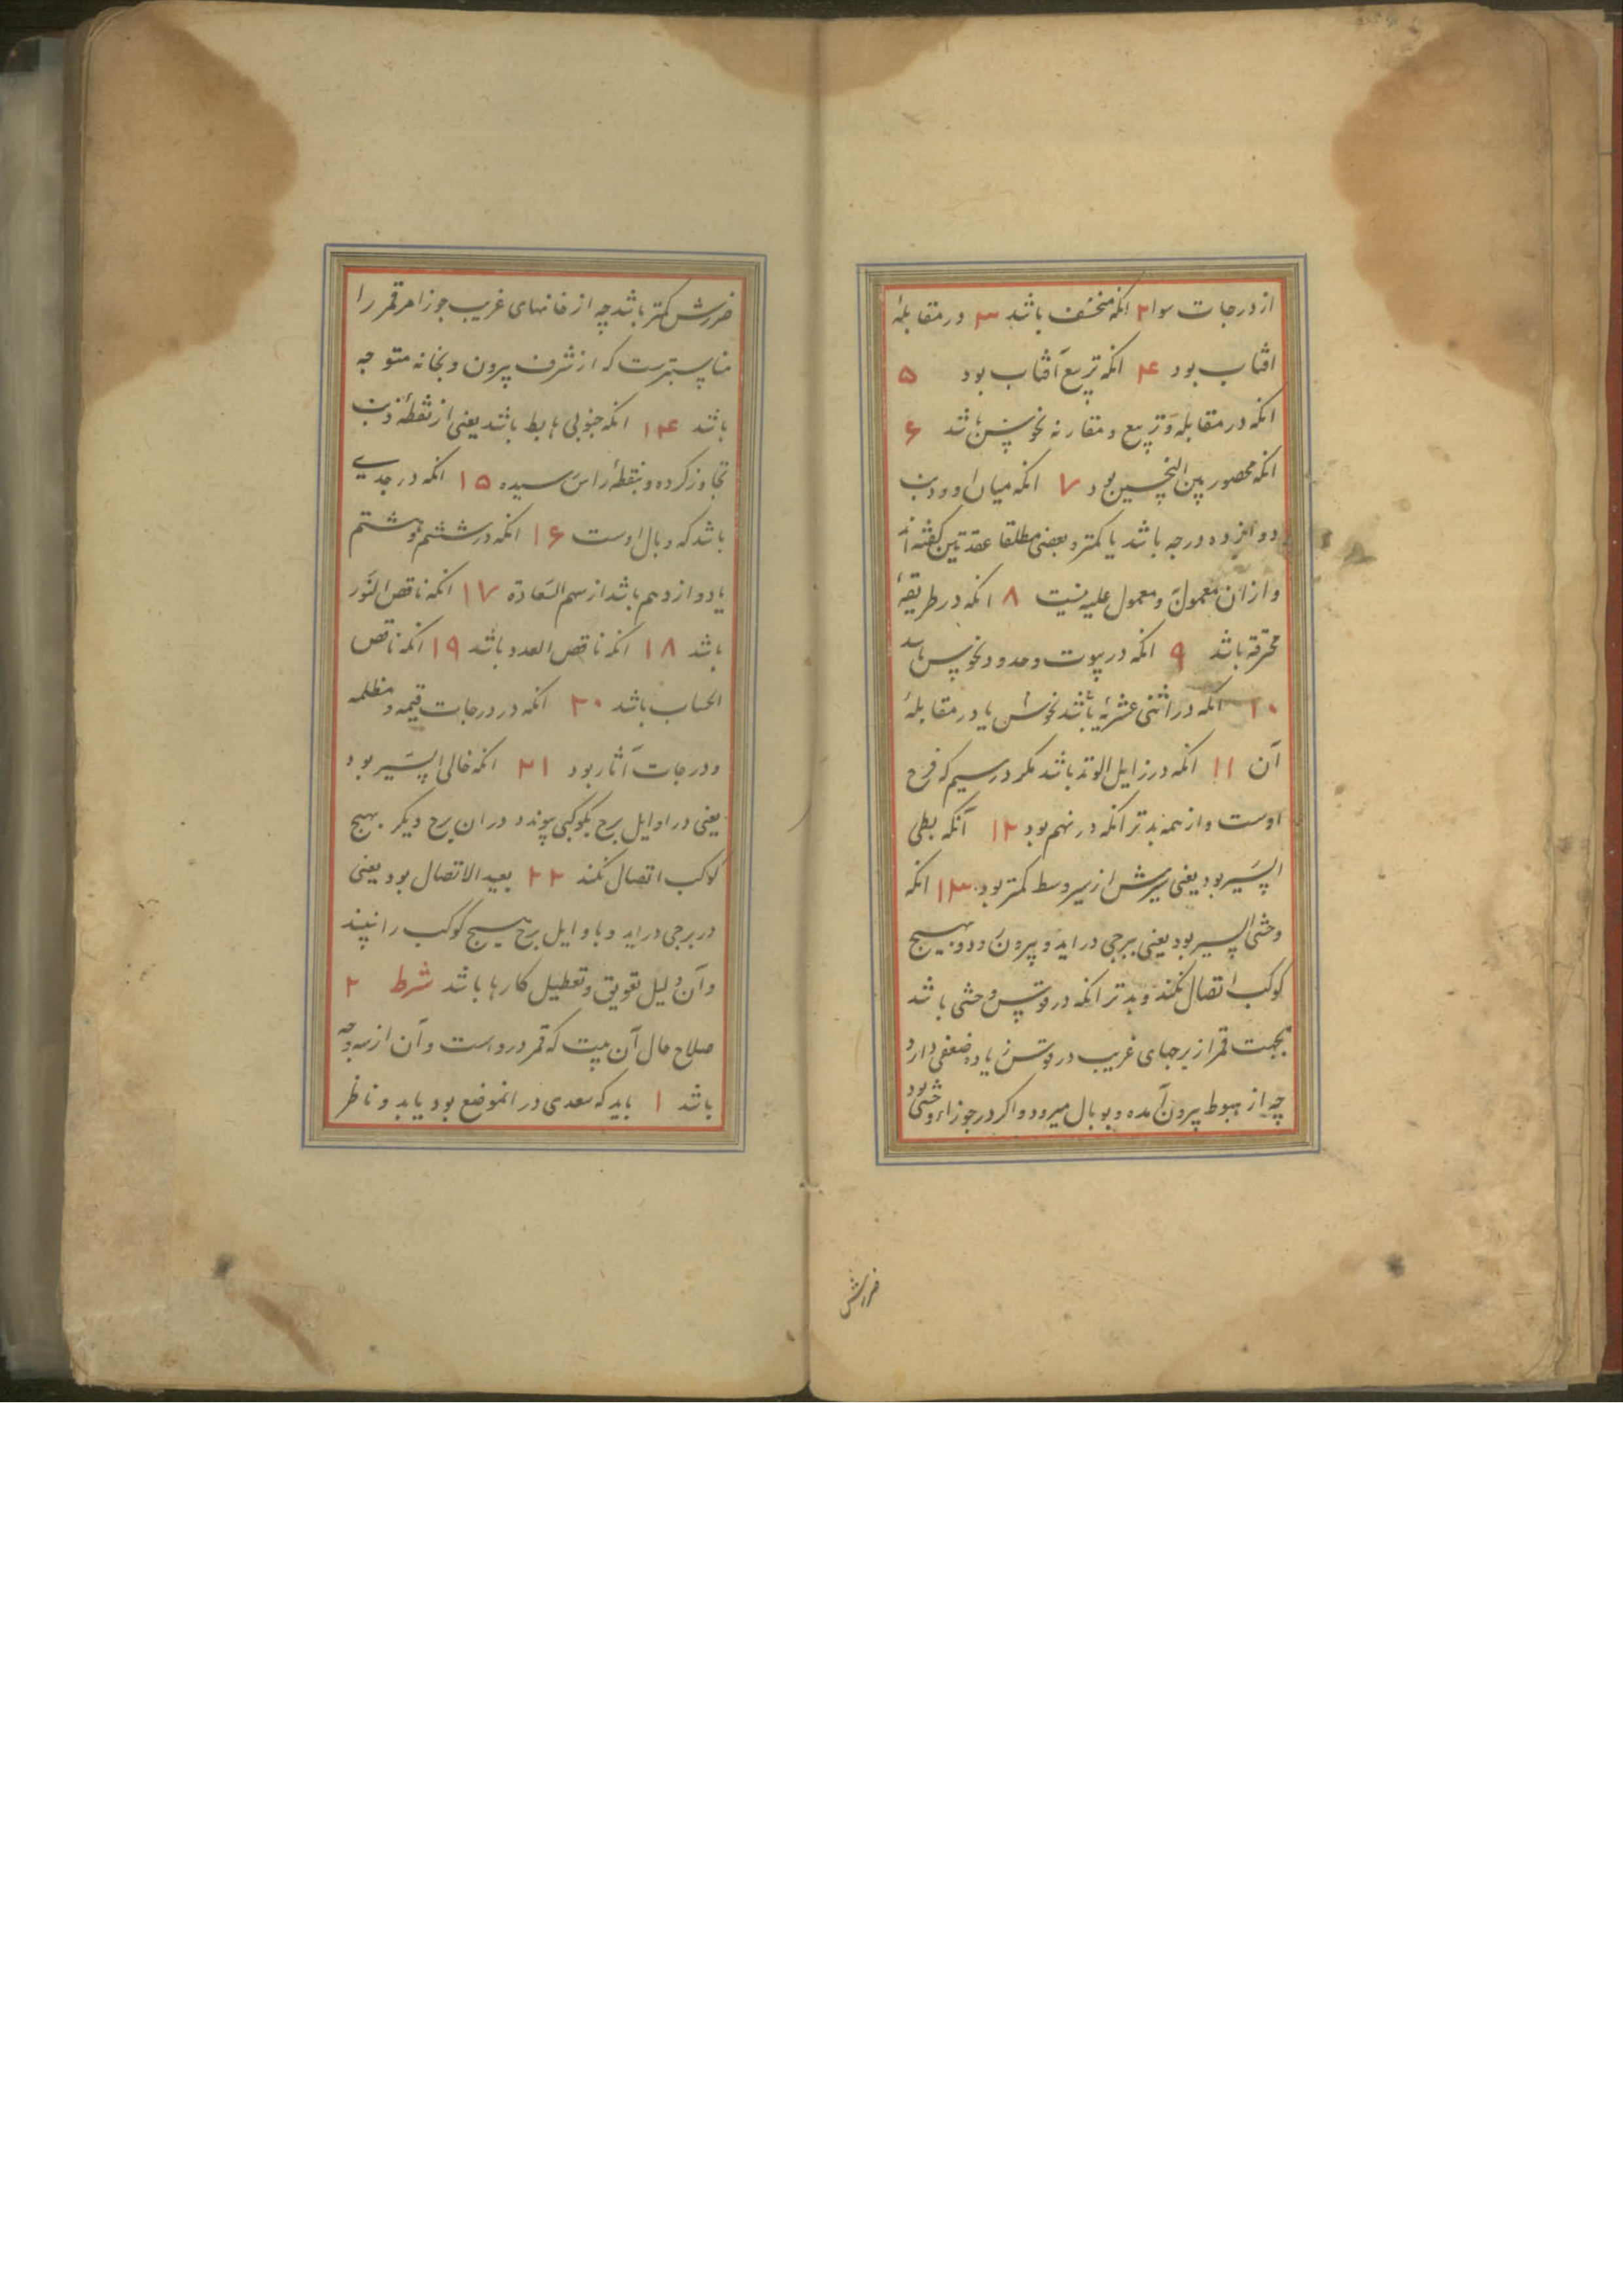 از درجات سوا ۲ انکه منخسف باشد ۳ در مقابلهٔ
افتاب بود ۴ انکه تربیع آفتاب بود ۵
انکه در مقابله و تربیع و مقارنه نحوس باشد ۶
انکه محصور بین النحسین بود ۷ انکه میان او و ذنب
دوازده درجه باشد یا کمتر و بعضی مطلقا عقدتین کفته اند
و ازان معمول و معمول علیه نیست ۸ انکه در طریقهٔ
محترقه باشد ۹ انکه در بیوت و حدود نحوس باشد
۱۰ انکه در اثنی عشریه باشد نحوس یا در مقابلهٔ
آن ۱۱ انکه در زایل الوتد باشد مکر در سیم که فرح
اوست و از همه بدتر انکه در نهم بود ۱۲ آنکه بطی
السیر بود یعنی سیرش از سیر وسط کمتر بود ۱۳ انکه
وحشی السیر بود یعنی ببرجی در اید و بیرون رود و بهیچ
کوکب اتصال نکند و بدتر انکه در قوس وحشی باشد
بجهت قمر از برجهای غریب در قوس زیاده ضعفی دارد
چه از هبوط بیرون آمده و بوبال میرود و اکر در جوزا وحشی بود
ضررش
ضررش کمتر باشد چه از خانهای غریب جوزا مر قمر را
مناسبترست که از شرف بیرون و بخانه متوجه
باشد ۱۴ انکه جنوبی هابط باشد یعنی از نقطهٔ ذنب
تجاوز کرده و بنقطهٔ راس رسیده ۱۵ انکه در جدی
باشد که وبال اوست ۱۶ انکه در ششم و هشتم
یا دوازدهم باشد از سهم السعادة ۱۷ انکه ناقص النور
باشد ۱۸ انکه ناقص العدد باشد ۱۹ انکه ناقص
الحساب باشد ۲۰ انکه در درجات قیمه و مظلمه
و درجات آثار بود ۲۱ انکه خالی السیر بود
یعنی در اوایل برج بکوکبی پیوندد در ان برج دیکر بهیچ
کوکب اتصال نکند ۲۲ بعید الاتصال بود یعنی
در برجی در اید و باوایل برج هیچ کوکب را نبیند
و آن دلیل تعویق و تعطیل کارها باشد شرط ۲
صلاح حال آن بیت که قمر دروست و آن از سه وجه
باشد ۱ باید که سعدی در انموضع بود یابد و ناظر